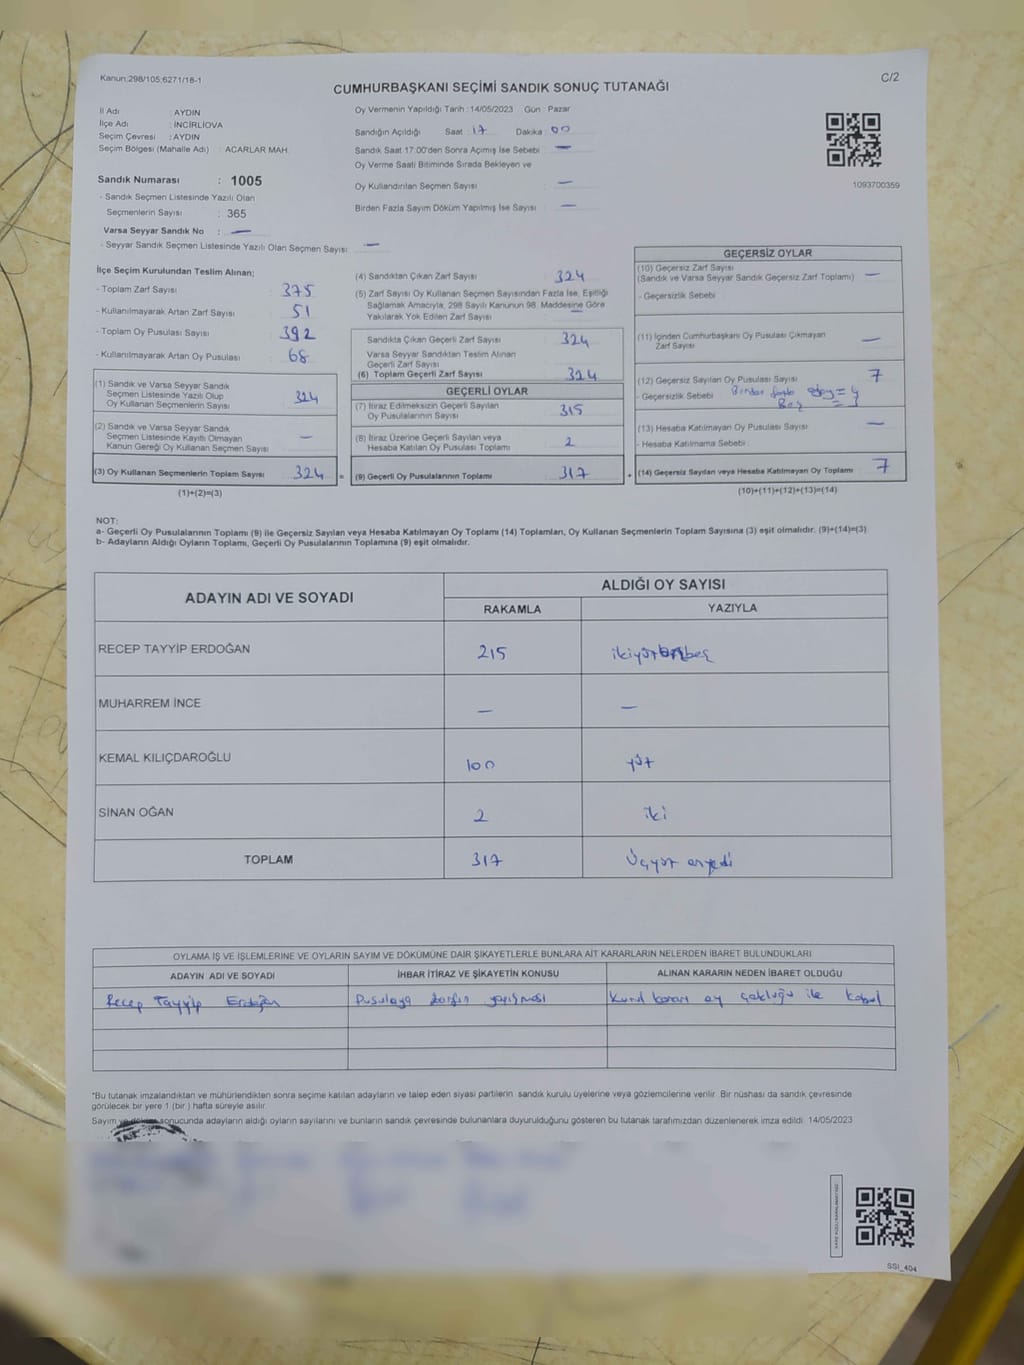 Kanun;298/105;6271/18-1
C/2
CUMHURBAŞKANI SEÇİMİ SANDIK SONUÇ TUTANAĞI
İl Adı : AYDIN
İlçe Adı : İNCİRLİOVA
Seçim Çevresi : AYDIN
Seçim Bölgesi (Mahalle Adı) : ACARLAR MAH.
Oy Vermenin Yapıldığı Tarih : 14/05/2023 Gün : Pazar
Sandığın Açıldığı Saat : 17 Dakika : 00
Sandık Saat 17:00'den Sonra Açımış İse Sebebi : —
Oy Verme Saati Bitiminde Sırada Bekleyen ve
Oy Kullandırılan Seçmen Sayısı : —
Birden Fazla Sayım Döküm Yapılmış İse Sayısı : —
1093700359
Sandık Numarası : 1005
- Sandık Seçmen Listesinde Yazılı Olan
Seçmenlerin Sayısı : 365
Varsa Seyyar Sandık No : —
- Seyyar Sandık Seçmen Listesinde Yazılı Olan Seçmen Sayısı: —
İlçe Seçim Kurulundan Teslim Alınan;
- Toplam Zarf Sayısı : 375
- Kullanılmayarak Artan Zarf Sayısı : 51
- Toplam Oy Pusulası Sayısı : 392
- Kullanılmayarak Artan Oy Pusulası : 68
(1) Sandık ve Varsa Seyyar Sandık
Seçmen Listesinde Yazılı Olup
Oy Kullanan Seçmenlerin Sayısı : 324
(2) Sandık ve Varsa Seyyar Sandık
Seçmen Listesinde Kayıtlı Olmayan
Kanun Gereği Oy Kullanan Seçmen Sayısı : —
(3) Oy Kullanan Seçmenlerin Toplam Sayısı : 324 =
(1)+(2)=(3)
(4) Sandıktan Çıkan Zarf Sayısı : 324
(5) Zarf Sayısı Oy Kullanan Seçmen Sayısından Fazla İse, Eşitliği
Sağlamak Amacıyla, 298 Sayılı Kanunun 98. Maddesine Göre
Yakılarak Yok Edilen Zarf Sayısı : —
Sandıkta Çıkan Geçerli Zarf Sayısı : 324
Varsa Seyyar Sandıktan Teslim Alınan
Geçerli Zarf Sayısı :
(6) Toplam Geçerli Zarf Sayısı : 324
GEÇERLİ OYLAR
(7) İtiraz Edilmeksizin Geçerli Sayılan
Oy Pusulalarının Sayısı : 315
(8) İtiraz Üzerine Geçerli Sayılan veya
Hesaba Katılan Oy Pusulası Toplamı : 2
(9) Geçerli Oy Pusulalarının Toplamı : 317 +
GEÇERSİZ OYLAR
(10) Geçersiz Zarf Sayısı
(Sandık ve Varsa Seyyar Sandık Geçersiz Zarf Toplamı) : —
- Geçersizlik Sebebi :
(11) İçinden Cumhurbaşkanı Oy Pusulası Çıkmayan
Zarf Sayısı : —
(12) Geçersiz Sayılan Oy Pusulası Sayısı : 7
- Geçersizlik Sebebi : Birden fazla = 4
Boş = 3
(13) Hesaba Katılmayan Oy Pusulası Sayısı : —
- Hesaba Katılmama Sebebi :
(14) Geçersiz Sayılan veya Hesaba Katılmayan Oy Toplamı : 7
(10)+(11)+(12)+(13)=(14)
NOT:
a- Geçerli Oy Pusulalarının Toplamı (9) ile Geçersiz Sayılan veya Hesaba Katılmayan Oy Toplamı (14) Toplamları, Oy Kullanan Seçmenlerin Toplam Sayısına (3) eşit olmalıdır. (9)+(14)=(3)
b- Adayların Aldığı Oyların Toplamı, Geçerli Oy Pusulalarının Toplamına (9) eşit olmalıdır.
ADAYIN ADI VE SOYADI ALDIĞI OY SAYISI
RAKAMLA YAZIYLA
RECEP TAYYİP ERDOĞAN 215 ikiyüzonbeş
MUHARREM İNCE — —
KEMAL KILIÇDAROĞLU 100 yüz
SİNAN OĞAN 2 iki
TOPLAM 317 Üçyüz onyedi
OYLAMA İŞ VE İŞLEMLERİNE VE OYLARIN SAYIM VE DÖKÜMÜNE DAİR ŞİKAYETLERLE BUNLARA AİT KARARLARIN NELERDEN İBARET BULUNDUKLARI
ADAYIN ADI VE SOYADI İHBAR İTİRAZ VE ŞİKAYETİN KONUSU ALINAN KARARIN NEDEN İBARET OLDUĞU
Recep Tayyip Erdoğan Pusulaya zarfın yapışması Kurul kararı oy çokluğu ile kabul
*Bu tutanak imzalandıktan ve mühürlendikten sonra seçime katılan adayların ve talep eden siyasi partilerin sandık kurulu üyelerine veya gözlemcilerine verilir. Bir nüshası da sandık çevresinde
görülecek bir yere 1 (bir ) hafta süreyle asılır.
Sayım ve döküm sonucunda adayların aldığı oyların sayılarını ve bunların sandık çevresinde bulunanlara duyurulduğunu gösteren bu tutanak tarafımızdan düzenlenerek imza edildi. 14/05/2023
SSI_404